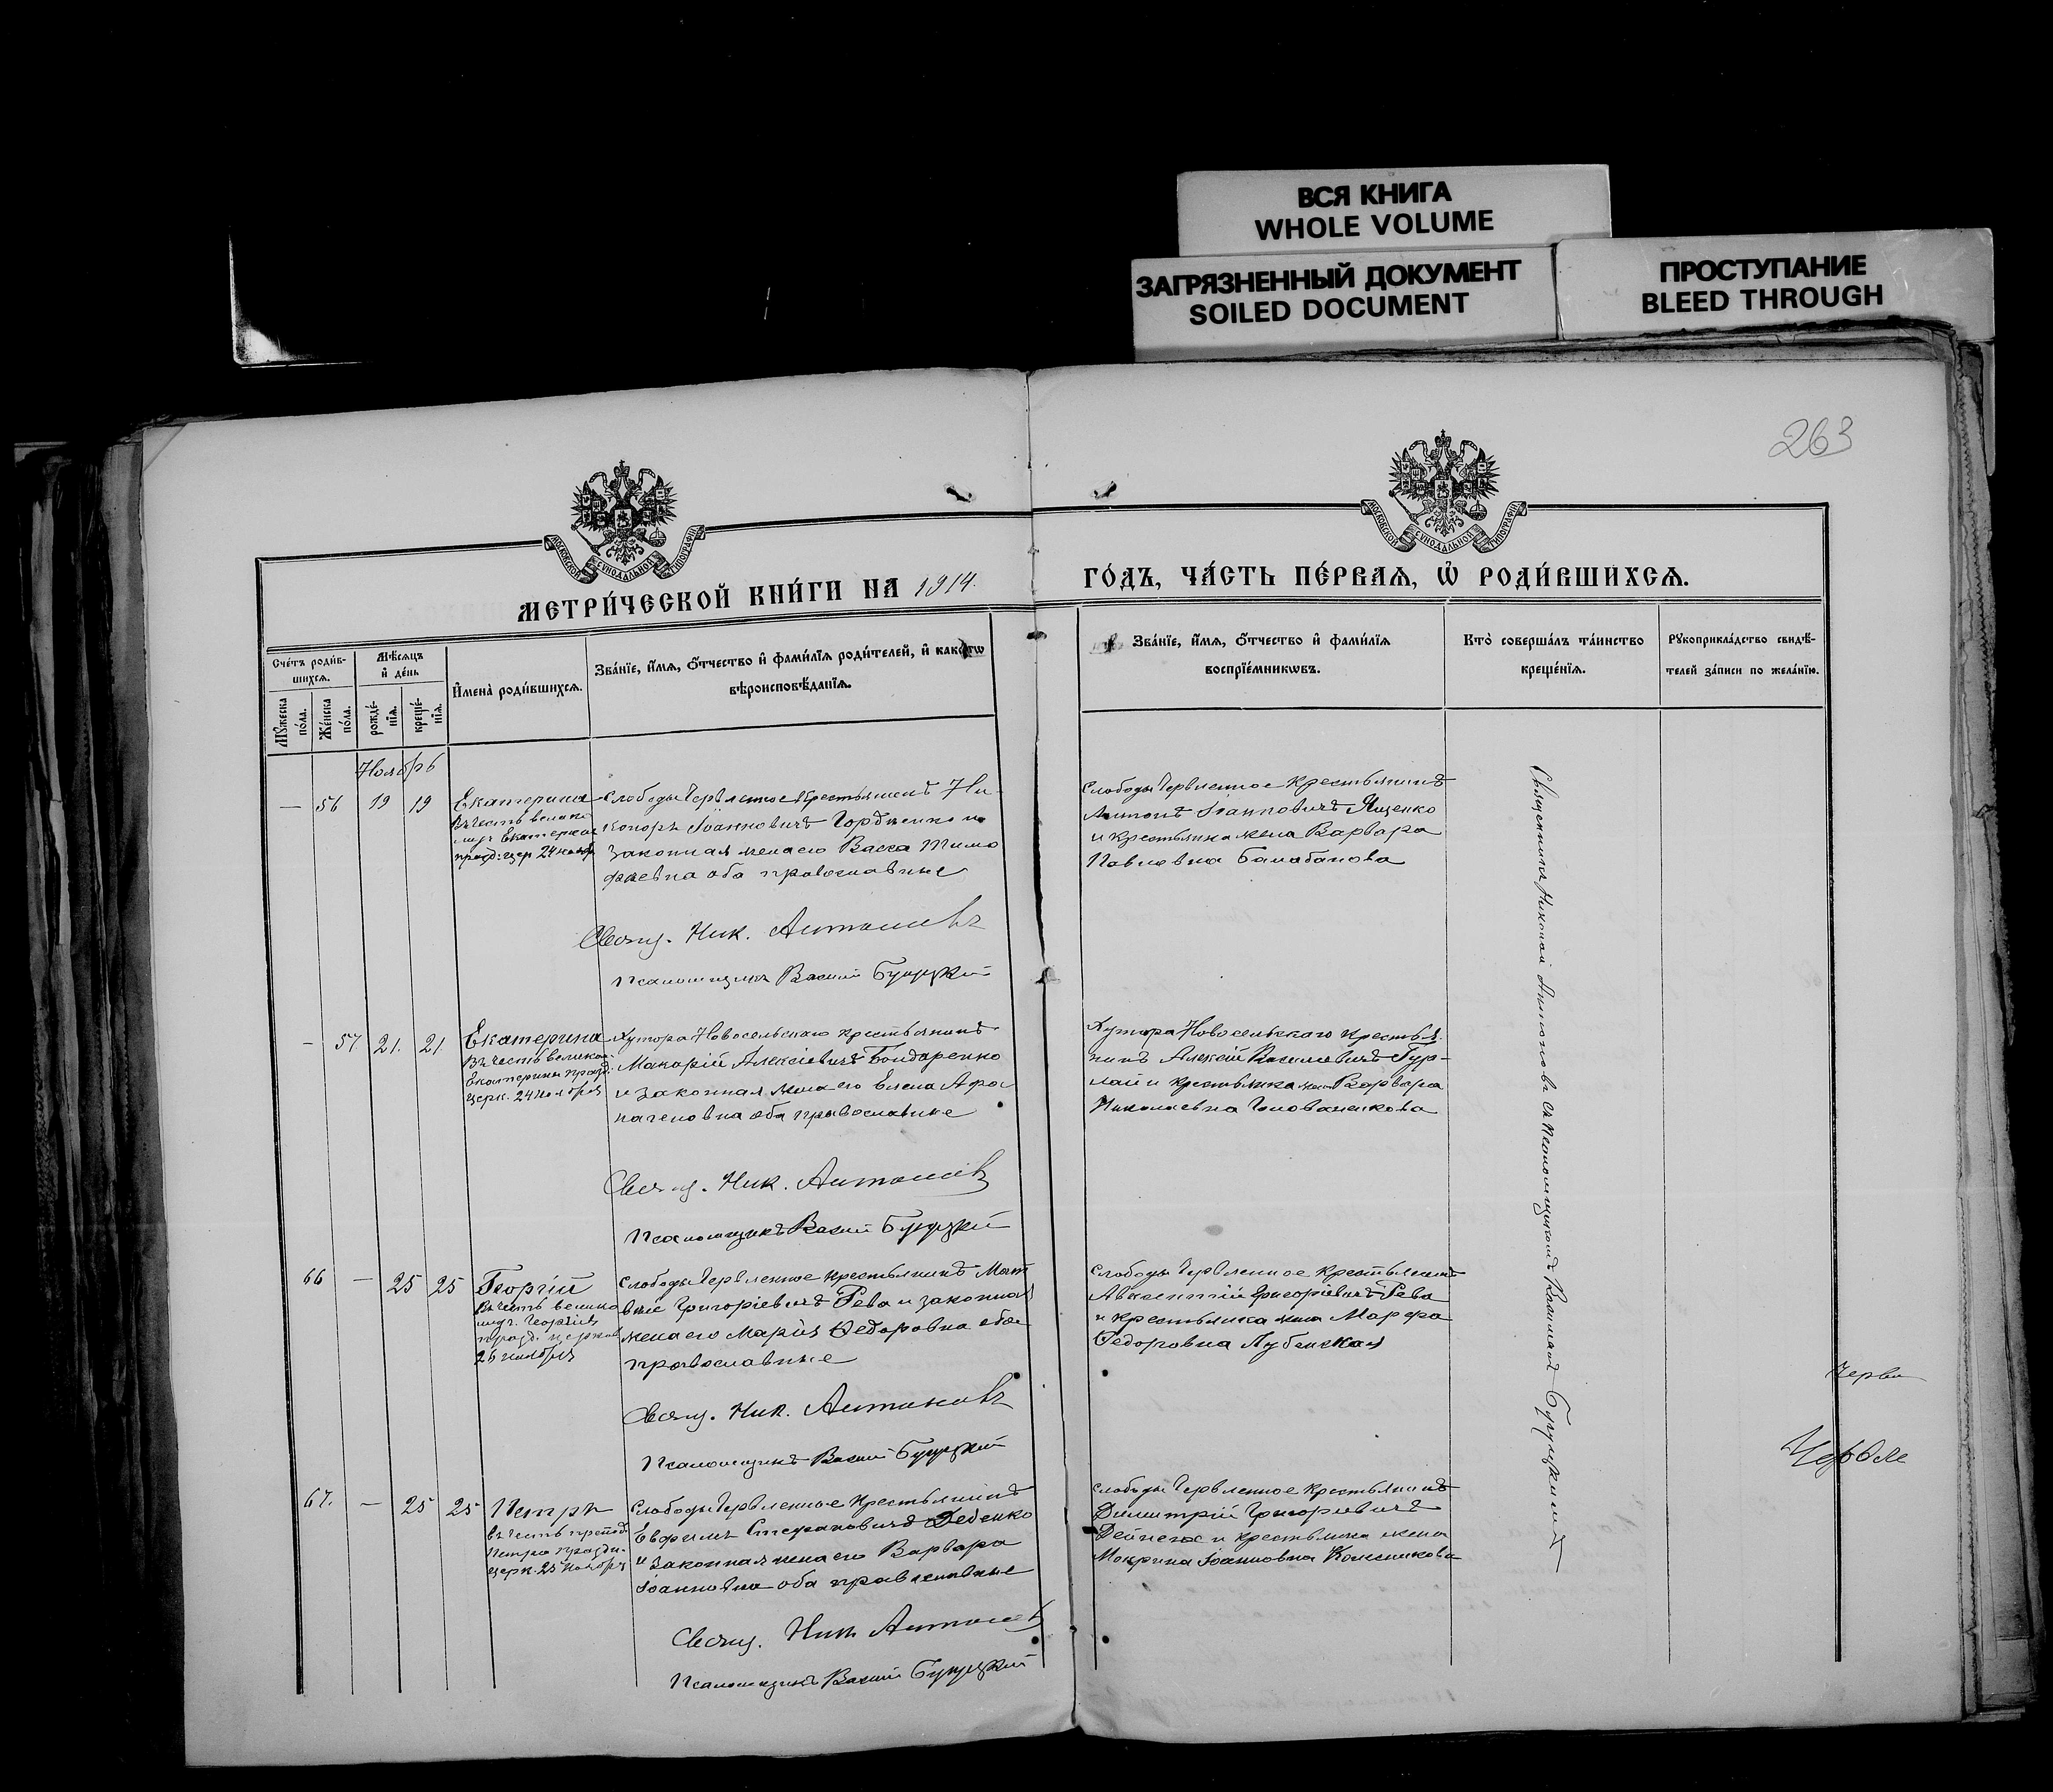 ВСЯ КНИГА
WHOLE VOLUME
ЗАГРЯЗНЕННЫЙ ДОКУМЕНТ
SOILED DOCUMENT
ПРОСТУПАНИЕ
BLEED THROUGH
263
МОСКОВСКОЙ СѴНОДАЛЬНОЙ ТИПОГРАФІИ
МОСКОВСКОЙ СѴНОДАЛЬНОЙ ТИПОГРАФІИ
МЕТРИ́ЧЕСКОЙ КНИ́ГИ НА 1914.
ГО́ДЪ, ЧА́СТЬ ПЕ́РВАѦ, Ѡ҆ РОДИ́ВШИХСѦ.
Сче́тъ роди́в-
шихсѧ.
Мꙋ́жеска
по́ла.
Же́нска
по́ла.
Мѣ́сѧцъ
и҆ де́нь
рожде́-
нїѧ.
креще́-
нїѧ.
И҆мена̀ роди́вшихсѧ.
Зва́нїе, и҆́мѧ, ѻ҆́тчество и҆ фами́лїѧ роди́телей, и҆ како́гѡ
вѣроисповѣ́данїѧ.
Зва́нїе, и҆́мѧ, ѻ҆́тчество и҆ фами́лїѧ
воспрїе́мникѡвъ.
Кто̀ соверша́лъ та́инство
креще́нїѧ.
Рꙋкоприкла́дство свидѣ́-
телей за́писи по жела́нїю.
Ноябрь
— 56 19 19
Екатерина
въ честь велико
муч. Екатерины
празд. цер. 24 ноября
Слободы Червленное крестьянинъ Ни
каноръ Іоанновичъ Гордіенко и
законная жена его Васса Тимо
фѣевна оба православные
Свящ. Ник. Антоновъ
Псаломщикъ Василій Буруцкій
Слободы Червленное крестьянинъ
Антонъ Іоанновичъ Ященко
и крестьянка жена Варвара
Павловна Балабанова
— 57. 21. 21.
Екатерина
Въ честь великом.
Екатерины празд.
церк. 24 ноября
Хутора Новосельскаго крестьянинъ
Макарій Алексіевичъ Бондаренко
и законная жена его Елена Афа
насіевна оба православные
Свящ. Ник. Антоновъ
Псаломщикъ Василій Буруцкій
Хутора Новосельскаго крестья
нинъ Алексій Василіевичъ Гур-
лай и крестьянка жена Варвара
Николаевна
66 — 25 25
Георгій
Въ честь велико
муч. Георгія
празд. церков
26 ноября
Слободы Червленное крестьянинъ Мат
вѣй Григоріевичъ Рева и законная
жена его Марія Ѳедоровна оба
православные
Свящ. Ник. Антоновъ
Псаломщикъ Василій Буруцкій
Слободы Червленное крестьянинъ
Авксентій Григоріевичъ Рева
и крестьянка жена Марфа
Ѳедоровна Лубенская
67. — 25 25
Петръ
въ честь препод.
Петра праздн.
церк. 25 ноября
Слободы Червленное крестьянинъ
Евфимъ Стефановичъ Деденко
и законная жена его Варвара
Іоанновна оба православные
Свящ. Ник. Антоновъ
Псаломщикъ Василій Буруцкій
Слободы Червленное крестьянинъ
Димитрій Григоріевичъ
Дейнега и крестьянка жена
Макрина Іоанновна Колесникова
Священникъ Николай Антоновъ съ псаломщикомъ Василіемъ Буруцкимъ
Черв
Червле